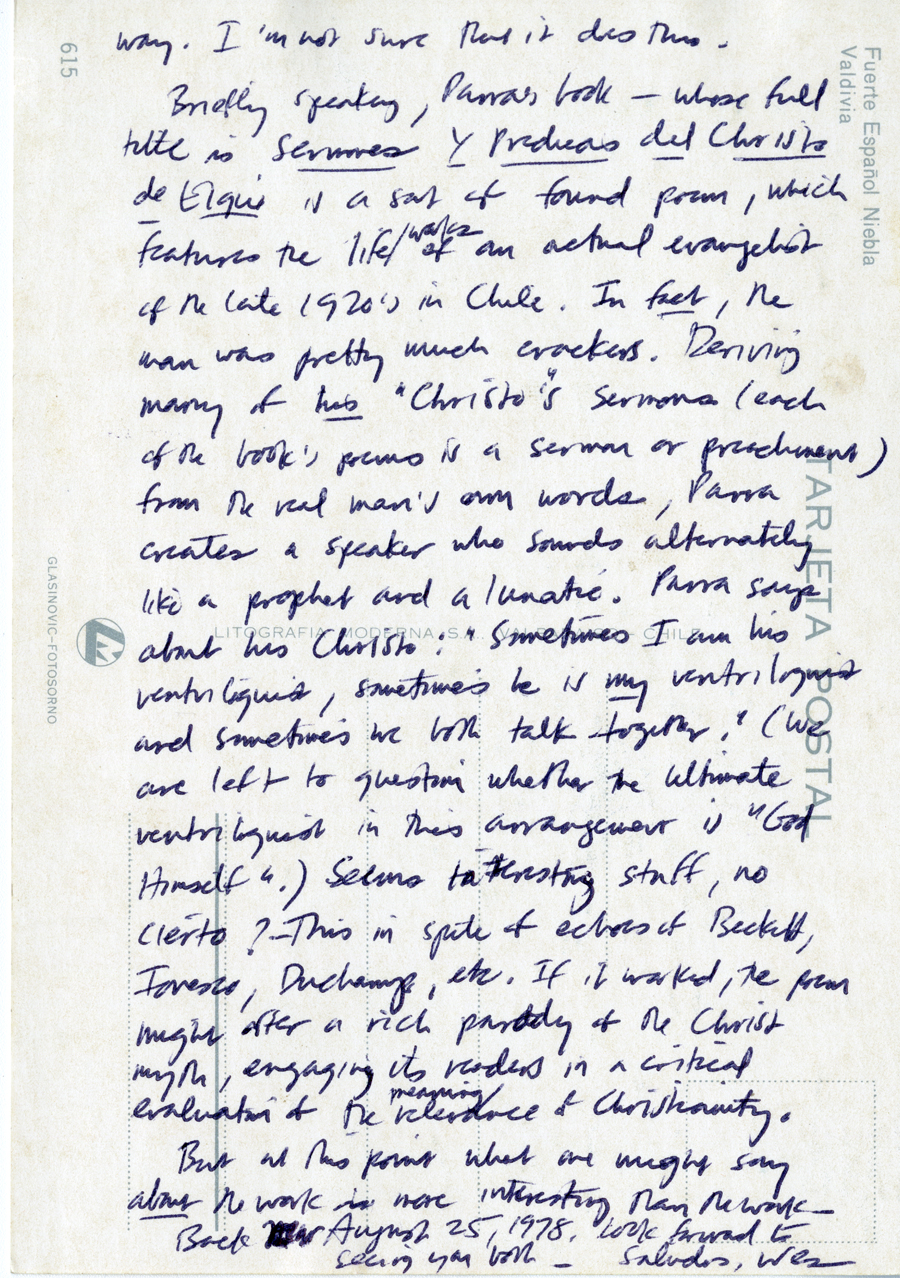 way. I'm not sure that it does this.
Briefly speaking, Parra's book — whose full
title is Sermones Y Predicas del Christo
de Elqui is a sort of found poem, which
features the life/works of an actual evangelist
of the late 1920's in Chile. In fact, the
man was pretty much crackers. Deriving
many of his "Christo"'s sermons (each
of the book's poems is a sermon or preachment)
from the real man's own words, Parra
creates a speaker who sounds alternately
like a prophet and a lunatic. Parra says
about his Christo: "Sometimes I am his
ventriloquist, sometimes he is my ventriloquist
and sometimes we both talk together." (We
are left to question whether the ultimate
ventriloquist in this arrangement is "God
Himself".) Seems interesting stuff, no
cierto? — This in spite of echoes of Beckett,
Ionesco, Duchamp, etc. If it worked, the poem
might offer a rich parody of the Christ
myth, engaging its readers in a critical
evaluation of the meaning/relevance of Christianity.
But at this point what one might say
about the work is more interesting than the work —
Back August 25, 1978. Look forward to
seeing you both — Saludos, Wes
615
Fuerte Español Niebla
Valdivia
TARJETA POSTAL
GLASINOVIC-FOTOSORNO
LITOGRAFIA MODERNA S.A. CHILE